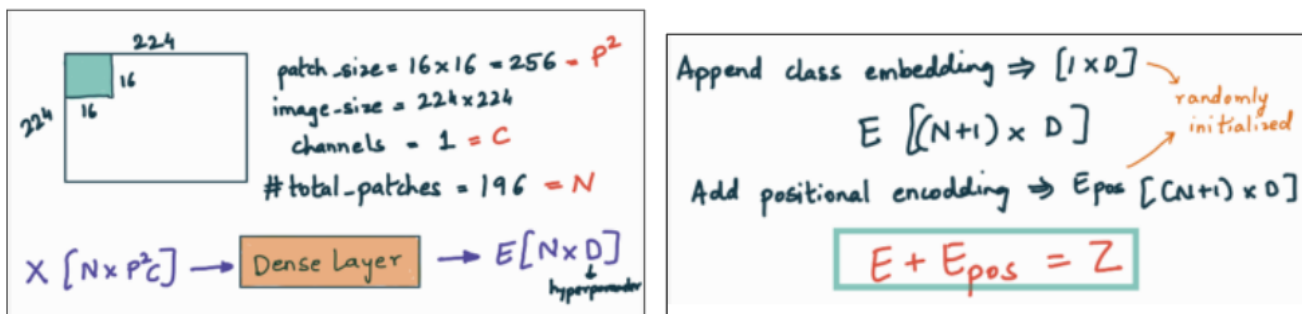 224
224
16
16
patch_size = 16×16 = 256 = P²
image_size = 224×224
channels = 1 = C
#total_patches = 196 = N
X [N × P²C] → Dense Layer → E[N × D]
hyperparameter
Append class embedding ⇒ [1 × D]
randomly
initialized
E [(N+1) × D]
Add positional encodding ⇒ Epos [(N+1) × D]
E + Epos = Z